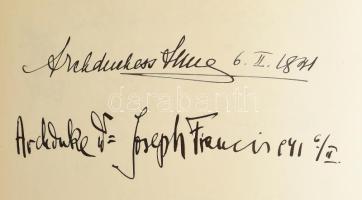 Archduchess Anna 6. II. 1941
Archduke Dr Joseph Francis 941 6/II.
darabanth